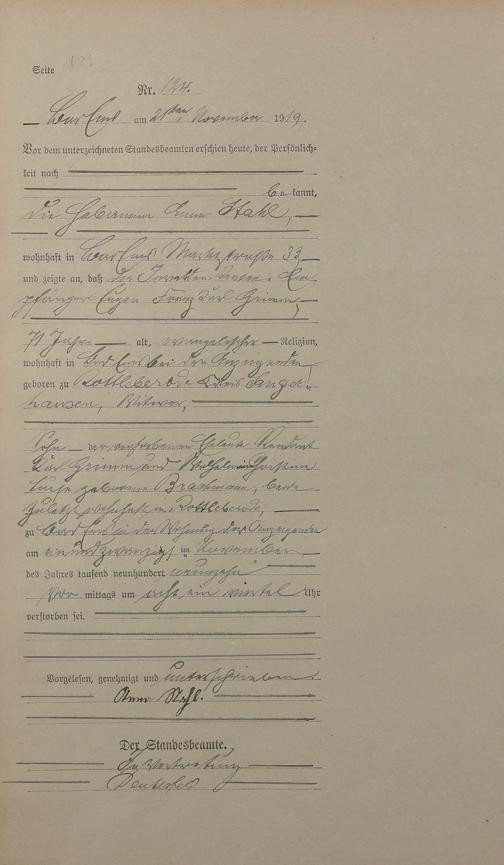 Seite 135
Nr. 134.
Bad Ems am 21ten November 1919.
Vor dem unterzeichneten Standesbeamten erschien heute, der Persönlich-
keit nach
bekannt,
die Hebamme Anna Stahl,
wohnhaft in Bad Ems Marktstraße 33
und zeigte an, daß der Invaliden-Renten-Em-
pfänger Eugen Franz Karl Grimm,
71 Jahre alt, evangelischer Religion,
wohnhaft in Bad Ems bei der Anzeigenden
geboren zu Rottleberode Kreis Sanger-
hausen, Witwer,
Sohn der verstorbenen Eheleute Rendant
Karl Grimm und Wilhelmine Christiane
Luise geborene Brackmann, beide
zuletzt wohnhaft in Rottleberode,
zu Bad Ems in der Wohnung der Anzeigenden
am einundzwanzigsten November
des Jahres tausend neunhundert neunzehn
Vor mittags um acht ein viertel Uhr
verstorben sei.
Vorgelesen, genehmigt und unterschrieben
Anna Stahl.
Der Standesbeamte.
In Vertretung